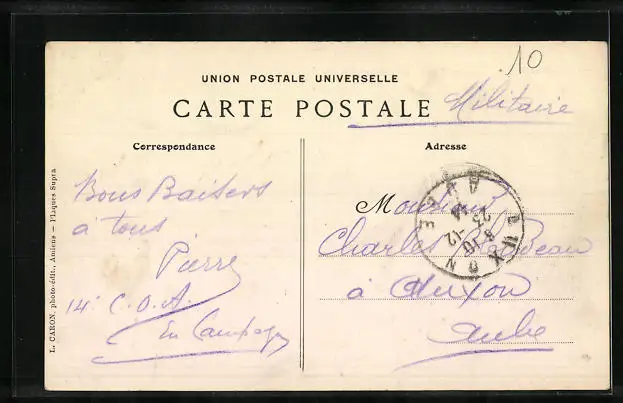 10
UNION POSTALE UNIVERSELLE
CARTE POSTALE Militaire
Correspondance
Adresse
Bons Baisers
à tous
Pierre
14e C.O.A.
En Campagne
Monsieur
Charles
à Auxon
Aube
AUXON
AUBE
23-12
L. CARON, photo-édit., Amiens — Plaques Supra